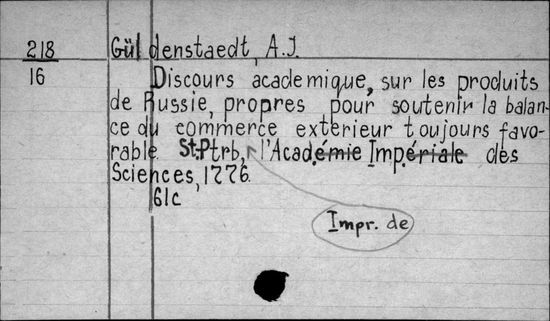 218 Güldenstaedt, A.J.
16 Discours academique, sur les produits
de Russie, propres pour soutenir la balan-
ce du commerce exterieur toujours favo-
rable. St.Ptrb, l'Académie Impériale des
Sciences, 1776.
61c
Impr. de